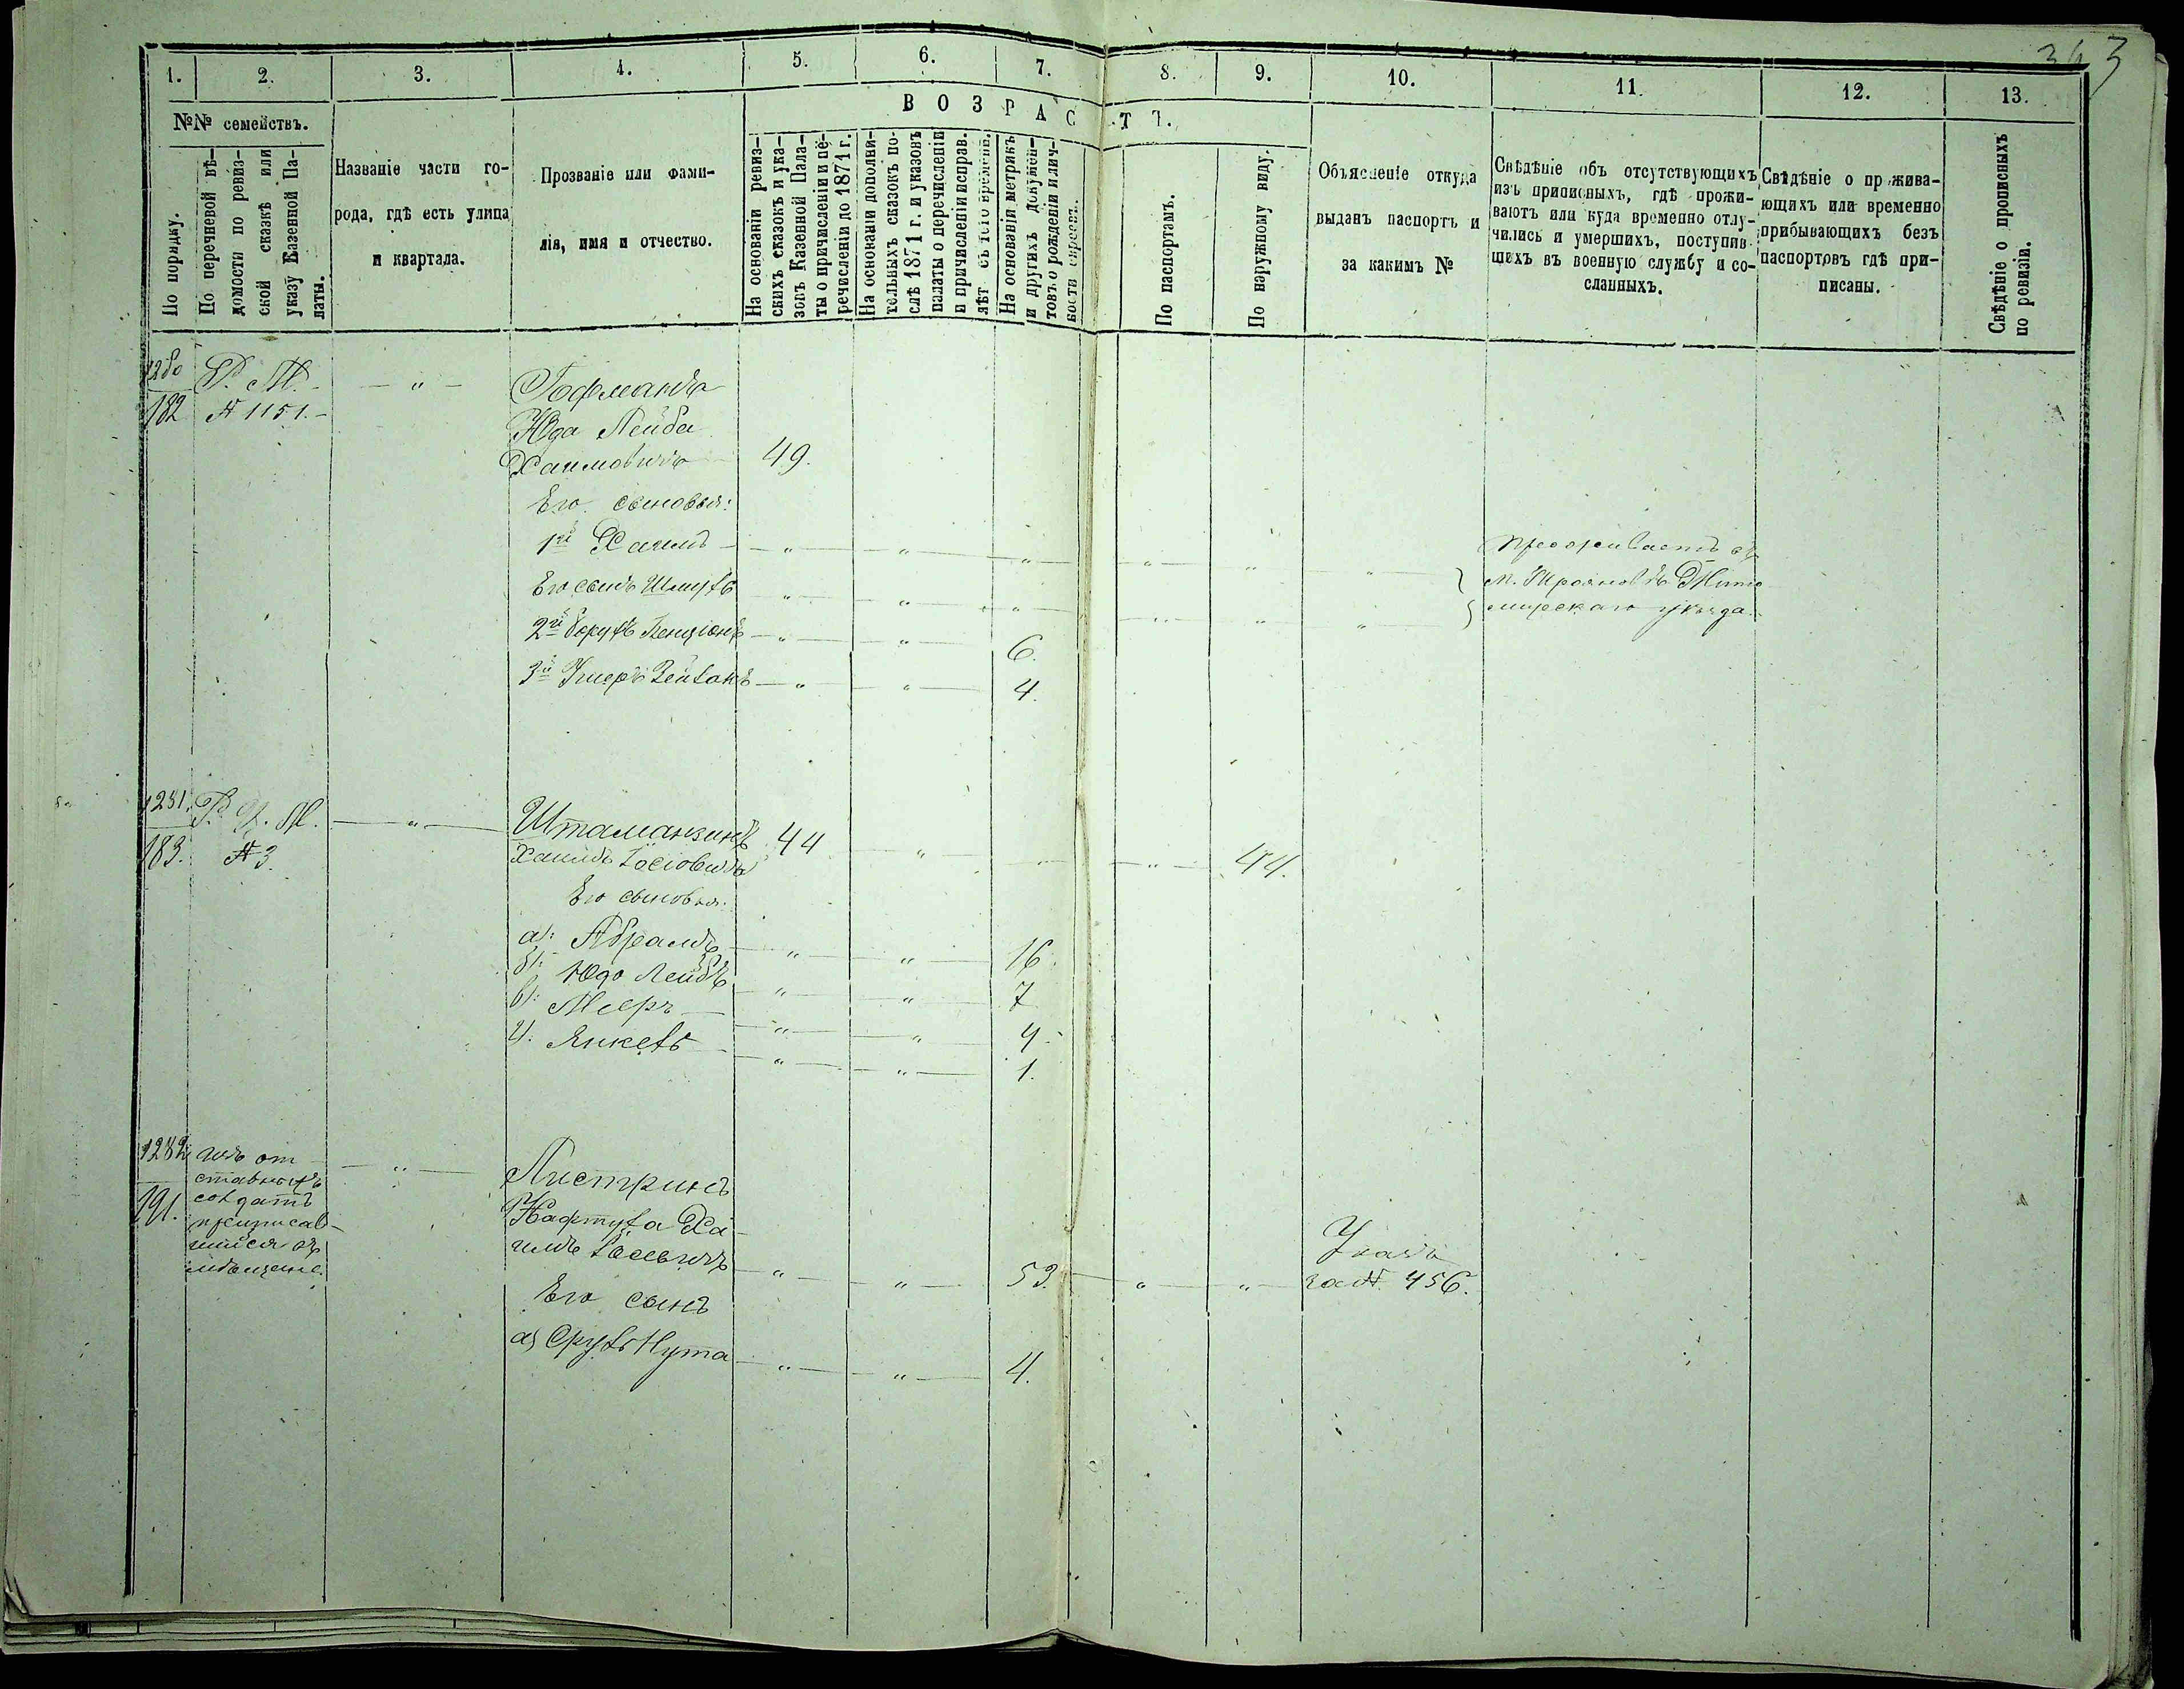 1. 2. 3. 4. 5. 6. 7. 8. 9. 10. 11. 12. 13.
№№ семействъ.
По порядку.
По перечневой вѣ-
домости по ревиз-
ской сказкѣ или
указу Казенной Па-
латы.
Названіе части го-
рода, гдѣ есть улица
и квартала.
Прозваніе или фами-
лія, имя и отчество.
ВОЗРАСТЪ.
На основаніи ревиз-
скихъ сказокъ и ука-
зовъ Казенной Пала-
ты о причисленіи и пе-
речисленіи до 1871 г.
На основаніи дополни-
тельныхъ сказокъ по-
слѣ 1871 г. и указовъ
палаты о перечисленіи
и причисленіи исправ.
лѣт съ того времени.
На основаніи метрикъ
и другихъ докумен-
товъ о рожденіи и лич-
ности евреевъ.
По паспортамъ.
По наружному виду.
Объясненіе откуда
выданъ паспортъ и
за какимъ №
Свѣдѣніе объ отсутствующихъ
изъ приписныхъ, гдѣ прожи-
ваютъ или куда временно отлу-
чились и умершихъ, поступив-
шихъ въ военную службу и со-
сланныхъ.
Свѣдѣніе о прожива-
ющихъ или временно
прибывающихъ безъ
паспортовъ гдѣ при-
писаны.
Свѣдѣніе о прописныхъ
по ревизіи.
1280 Р. М. — " — Гофманъ
182 № 1151.
Юда Лейба
Хаимовичъ 49.
Его сыновья:
1й Хаимъ — " — " — " — " " "
Проживаетъ въ
Его сынъ Шмуль " " " " " "
м. Трояновѣ Жито
мирскаго уѣзда.
2й Борухъ Бенціонъ — " " 6.
3й Ушеръ Зейванъ — " " 4.
1281. Р. М. — " — 44 " " 44.
183. № 3. Хаимъ Іосіовичъ
Его сыновья:
а): Абрамъ — " — " — 16.
б): Юдо Лейбъ — " — " — 7
в): Мееръ — " — " — 4.
г). Янкель — " — " — 1.
1282 изъ от
ставныхъ
191. солдатъ
приписав-
шійся въ
мѣщане.
— " — Листринъ
Нафтула Ха-
имъ Іосевичъ — " — " — 53. — " — " —
Указъ
за № 456.
Его сынъ
а) Сруль Нута — " — " — 4.